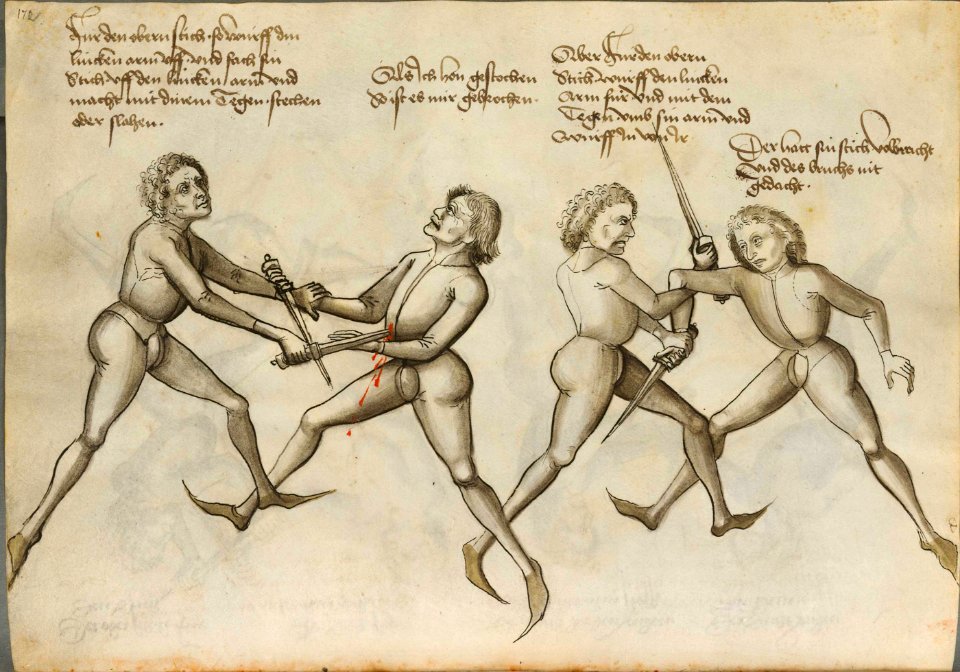 172
Fur den obern stich so wurff din
lincken arm uff und fach sin
Stich uff den lincken arm und
macht mit dinem Tegen stechen
oder slahen.
Als Ich hon gestochen
So ist es mir gebrochen.
Aber Fur den obern
Stich wurff den lincken
Arm fur und mit dem
Tegen umb sin arm und
Wurff In von dir
Der hatt sin stich volbracht
Und des bruchs nit
gedacht.